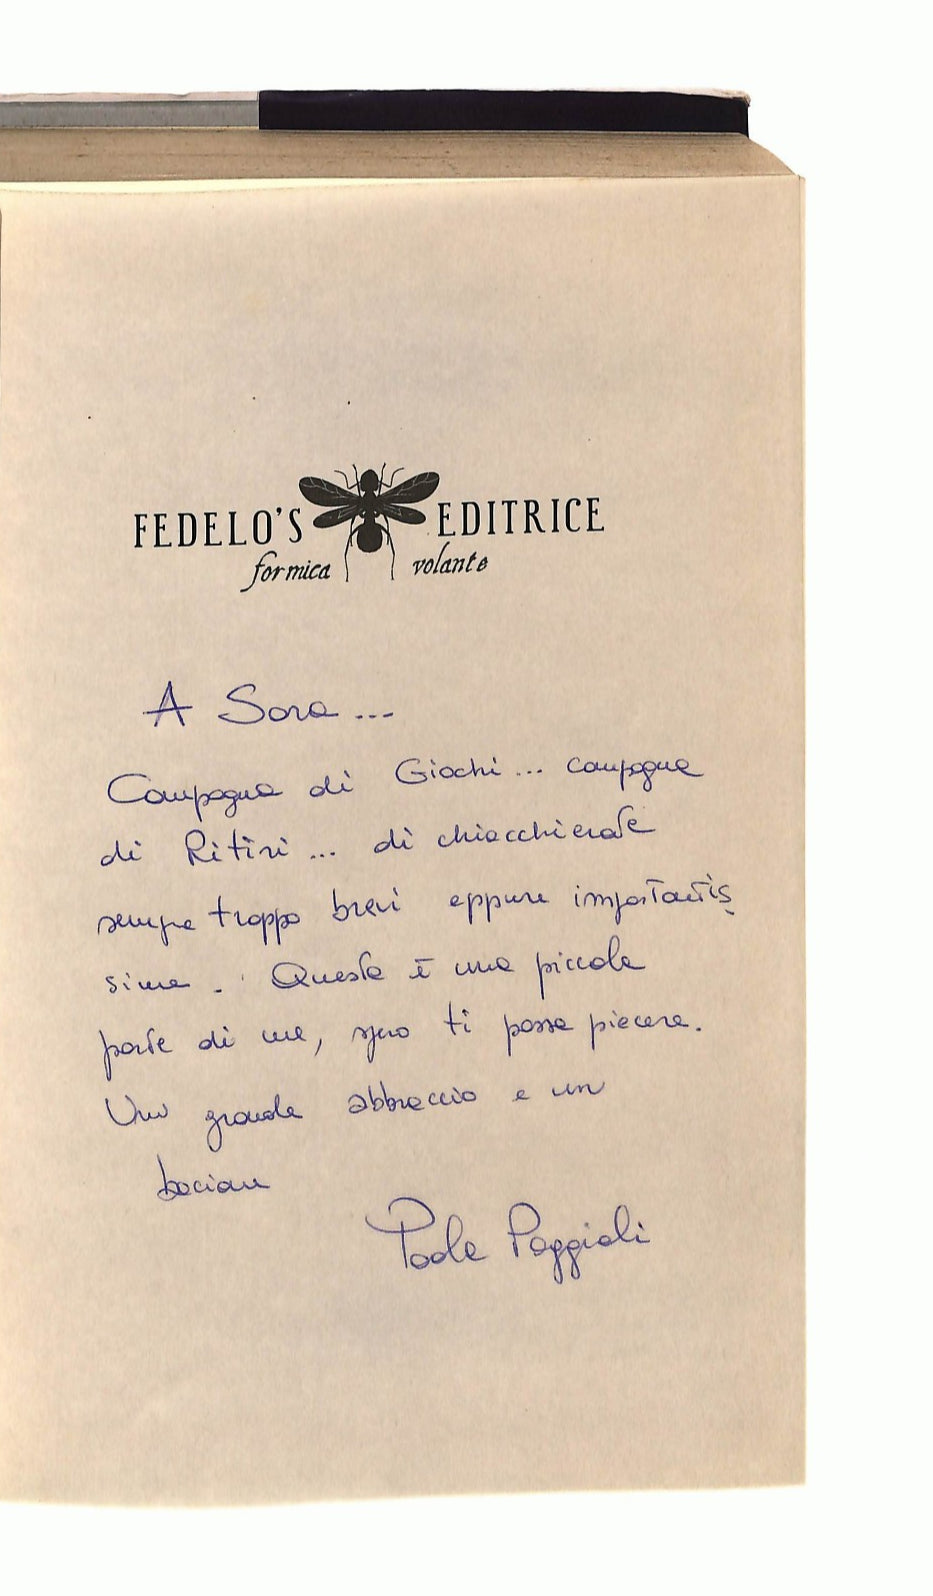 FEDELO'S EDITRICE
formica volante
A Sara...
Compagna di Giochi... compagna
di Ritiri... di chiacchierate
sempre troppo brevi eppure importantis
sime. Questa è una piccola
parte di me, spero ti possa piacere.
Un grande abbraccio e un
bacione
Paola Poggioli